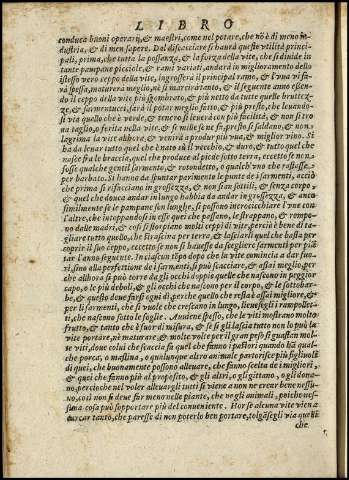 LIBRO
conduca buoni operarij, & maestri, come nel potare, che nō è di meno in-
dustria, & di men sapere. Dal discacciare si haurà queste vtilità princi-
pali, prima, che tutta la possanza, & la forza della vite, che si diuide in
tante pampane picciole, & rami variati, andarà in miglioramento dello
istesso vero ceppo della vite, ingrosserà il principal ramo, & l'vua vi farà
spessa, maturerà meglio, nè si marcirà tanto, & il seguente anno essen-
do il ceppo della vite più sgombrato, & più netto da tutte quelle bruttez-
ze, & sarmenticcie, si potrà potar meglio, & più presto, che leuando-
si via quello che è verde, & tenero si leuerà con più facilità, & non si tro
na taglio, o ferita nella vite, & se molte se ne fa, presto si saldano, & non
lagrima la vite allhora, & venirà a produr più vua, & miglior vino. Si
ha da leuar tutto quel che è nato sù il vecchio, & duro, & tutto quel che
nasce fra le braccia, quel che produce al piede sotto terra, eccetto se non
fosse qualche gentil sarmento, & rotondetto, o qualch'vno che restasse
per barbato. Si hanno da spuntar parimente le punte de i sarmenti, acciò
che prima si rifacciano in grossezza, & non sian sottili, & senza corpo,
& quel che doueua andar in lungo habbia da andar ingrossando, & anco
similmente se le pampane son lunghe, si possono incrocicchiare l'vne con
l'altre, che intoppandosi in esse quei che passano, le strappano, & rompo-
no dalle madri, & così si storpiano molti ceppi di vite, perciò è bene di ta-
gliare tutto quello, che si strascina per terra & lasciarli quel che basta per
coprir il suo ceppo, eccetto se non si hauesse da scegliere sarmenti per pian
tar l'anno seguente. In ciascun tēpo dopo che la vite comincia a dar fuo-
ri, sino alla perfettione de i sarmenti, si può scacciare, & assai meglio, per
che allhora si può torre da gli occhi doppij quelle che nascono in peggior
capo, o le più deboli, & gli occhi che nascono per il corpo, & le sottobar-
be, & questo deue farsi ogni dì, perche quello che resta è assai migliore, &
per li sarmenti, che si vuole che crescano in lungo, lieuasegli i rampollet-
ti, che nascono sotto le foglie. Auuiene spesso, che le viti mostrano molto
frutto, & tanto che è fuor di misura, & se si gli lascia tutto non lo può la
vite portare, nè maturare, & molte volte per il gran peso si guastan mol-
te viti, doue colui che scaccia fa quel che fanno i pastori quando hà qual-
che porca, o mastina, o qualunque altro animale partorisce più figliuoli
di quei, che buonamente possono alleuare, che fanno scelta de i migliori,
& quei che sanno più al proposito, & gli altri, o gli gittano, o gli dona-
no, perciochè nel voler alleuargli tutti si viene a non ne crear bene nessu-
no, così non si deue far meno nelle piante, che ne gli animali, poiche nes-
suna cosa può sopportare più del conueniente. Hor se alcuna vite viene a
caricar tanto, che paresse di non poterlo ben portare, tolgasegli via quelli
che